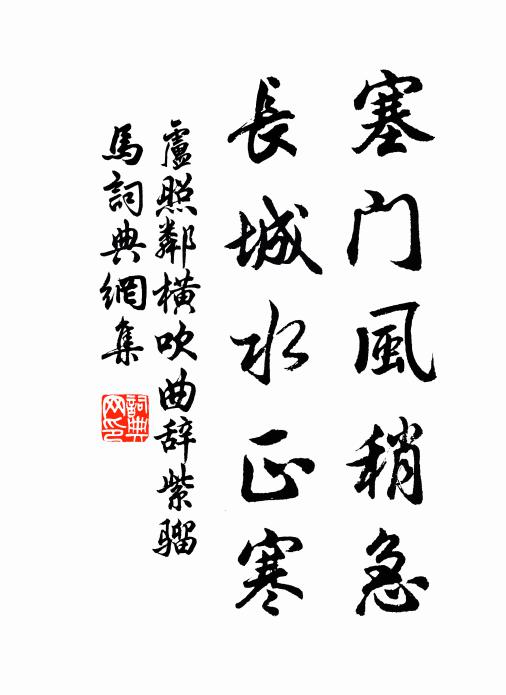 塞门風稍急
長城水正寒
盧照鄰橫吹曲辞紫骝
馬詞典網集
詞典
网印